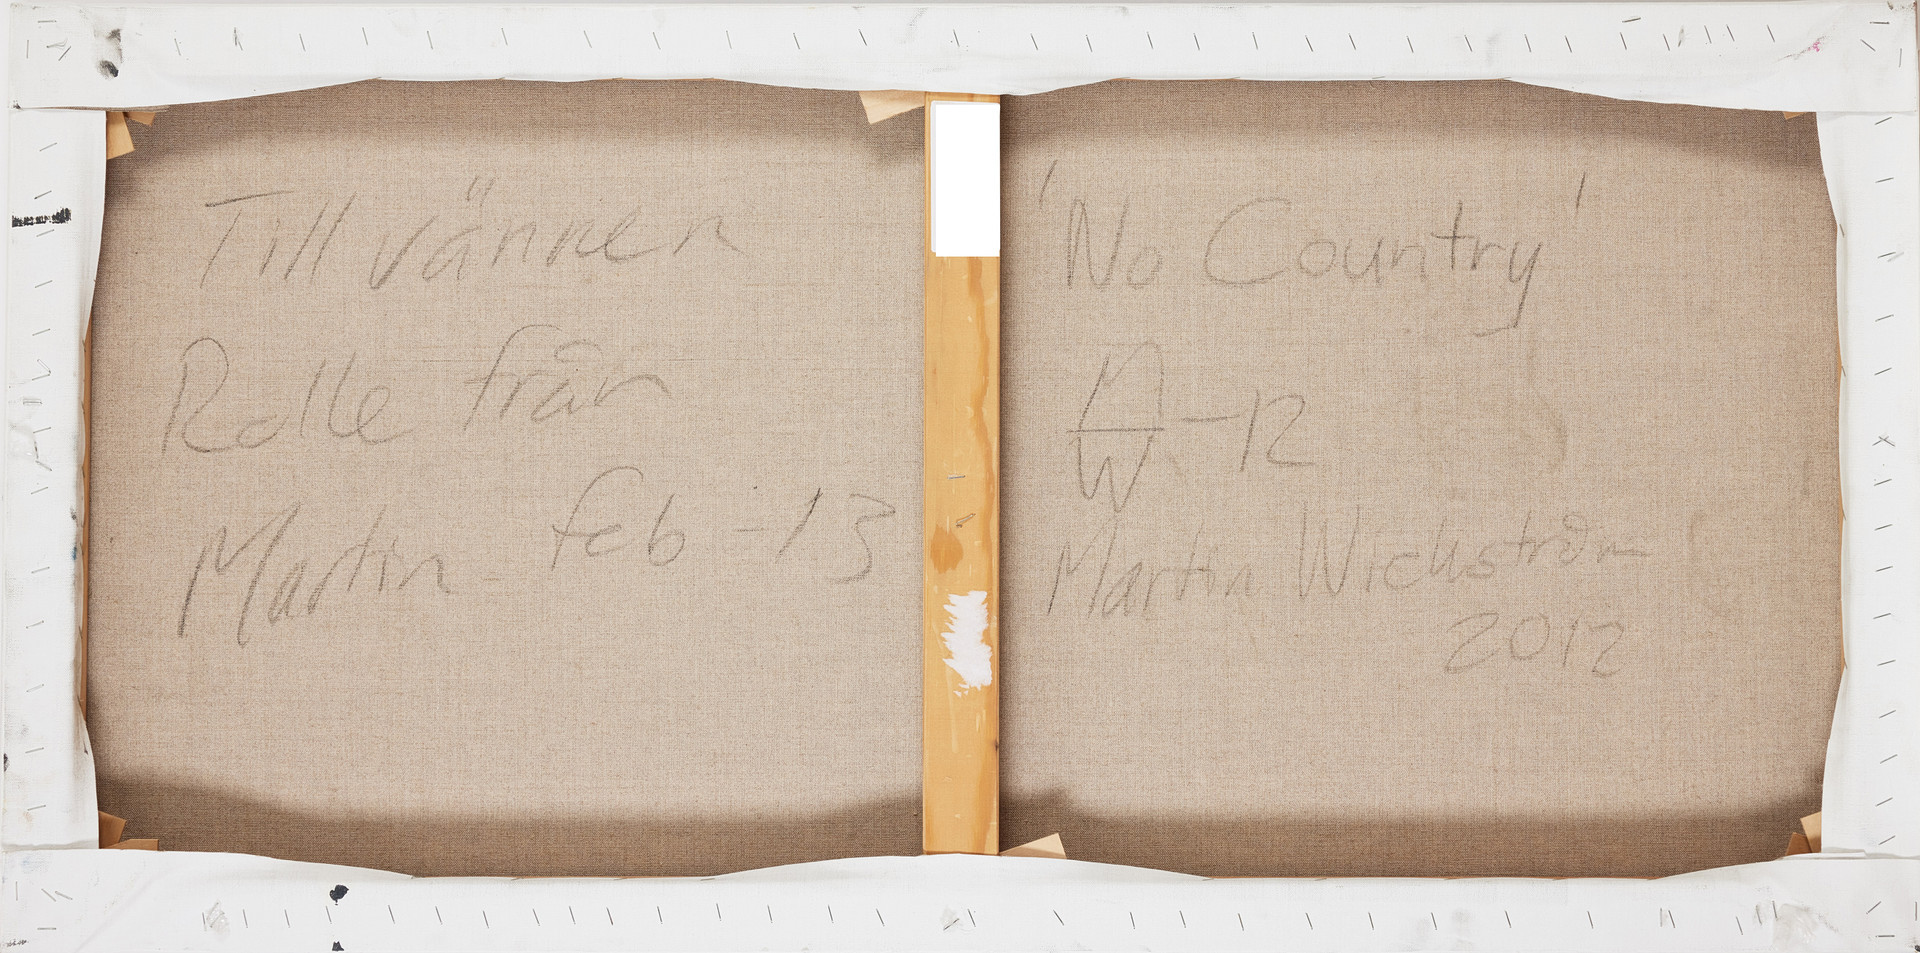 Till vännen
Rolle från
Martin feb -13
'No Country'
M
W -12
Martin Wickström
2012